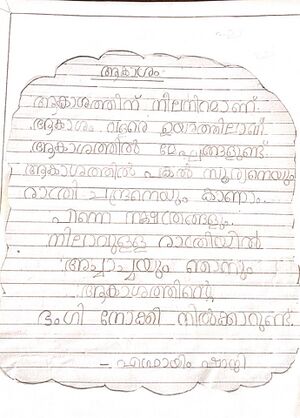 ആകാശം
ആകാശത്തിന് നീലനിറമാണ്.
ആകാശം വളരെ ഉയരത്തിലാണ്.
ആകാശത്തിൽ മേഘങ്ങളുണ്ട്.
ആകാശത്തിൽ പകൽ സൂര്യനെയും
രാത്രി ചന്ദ്രനെയും കാണാം.
പിന്നെ നക്ഷത്രങ്ങളും.
നിലാവുള്ള രാത്രിയിൽ
അപ്പച്ചയും ഞാനും
ആകാശത്തിന്റെ
ഭംഗി നോക്കി നിൽക്കാറുണ്ട്.
- എഫ്രായിം